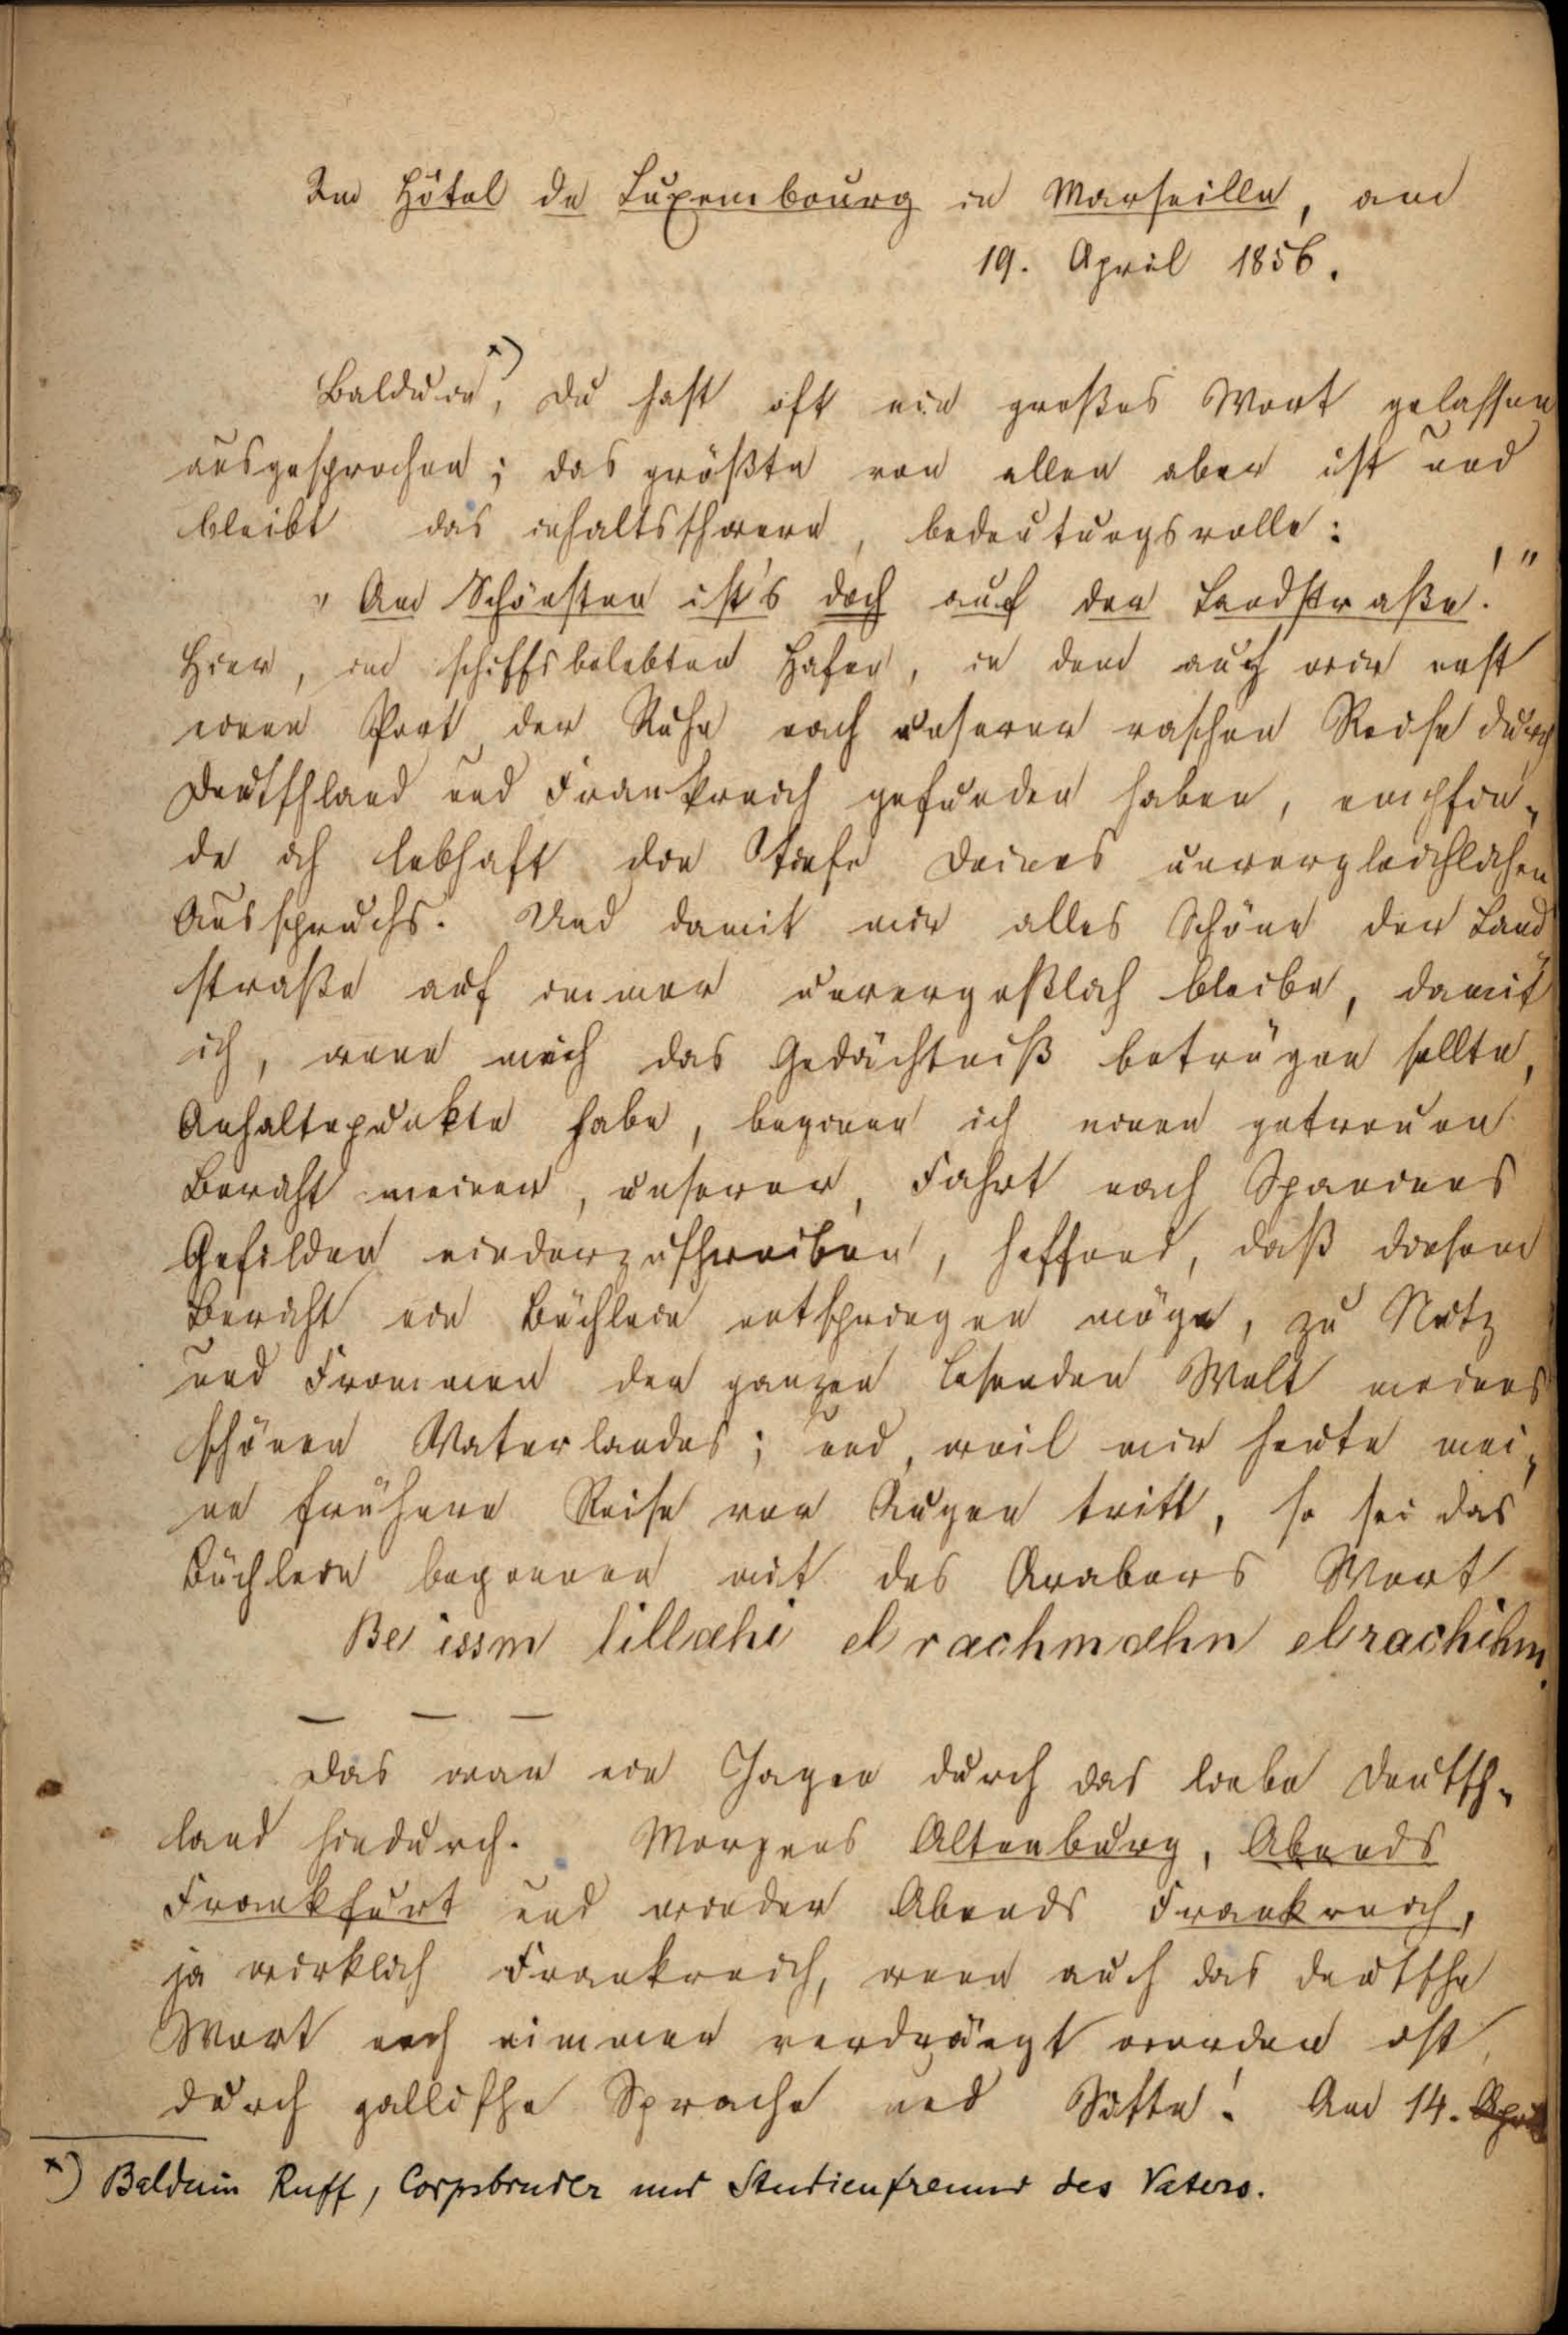 Im Hôtel de Luxembourg in Marseille, am
19. April 1856.
Balduin*), Du hast oft ein großes Wort gelassen
ausgesprochen; das größte von allen aber ist und
bleibt das inhaltsschwere, bedeutungsvolle:
„Am Schönsten ist's doch auf der Landstraße!"
Hier, im schiffsbelebten Hafen, in dem auch wir erst
einen Port der Ruhe nach unserer raschen Reise durch
Deutschland und Frankreich gefunden haben, empfin-
de ich lebhaft die Tiefe Deines unvergleichlichen
Ausspruchs. Und damit mir alles Schöne der Land-
straße auf immer unvergeßlich bleibe, damit
ich, wenn mich das Gedächtniß betrügen sollte,
Anhaltepunkte habe, beginne ich einen getreuen
Bericht meiner, unserer, Fahrt nach Spaniens
Gefilden niederzuschreiben, hoffend, daß diesem
Bericht ein Büchlein entspringen möge, zu Nutz
und Frommen der ganzen lesenden Welt meines
schönen Vaterlandes; und, weil mir heute mei-
ne frühere Reise vor Augen tritt, so sei das
Büchlein begonnen mit des Arabers Wort
Be issm lillæhi el rachmæhn el rachihm.
— — —
Das war ein Jagen durch das liebe Deutsch-
land hindurch. Morgens Altenburg, Abends
Frankfurt und wieder Abends Frankreich,
ja wirklich Frankreich, wenn auch das deutsche
Wort noch nimmer verdrängt worden ist
durch gallische Sprache und Sitte! Am 14. April
*) Balduin Ruff, Corpsbruder und Studienfreund des Vaters.